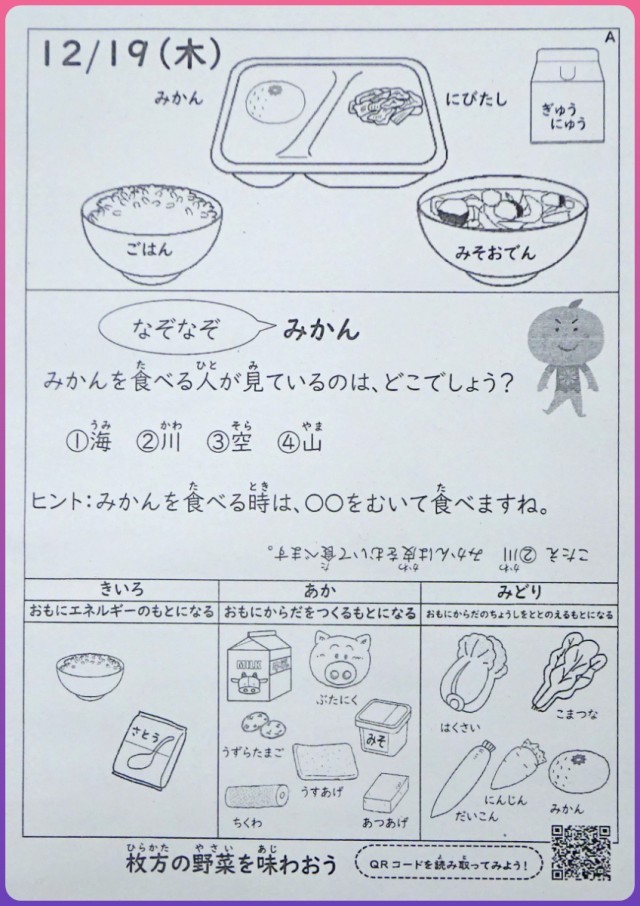 A
12/19(木)
みかん
にびたし
ぎゅう
にゅう
ごはん
みそおでん
なぞなぞ
みかん
みかんを食べる人が見ているのは、どこでしょう?
①海 ②川 ③空 ④山
ヒント:みかんを食べる時は、〇〇をむいて食べますね。
こたえ ②川 みかんは皮をむいて食べます。
きいろ
あか
みどり
おもにエネルギーのもとになる
おもにからだをつくるもとになる
おもにからだのちょうしをととのえるもとになる
さとう
MILK
ぶたにく
うずらたまご
みそ
うすあげ
ちくわ
あつあげ
はくさい
こまつな
にんじん
だいこん
みかん
枚方の野菜を味わおう
QRコードを読み取ってみよう!